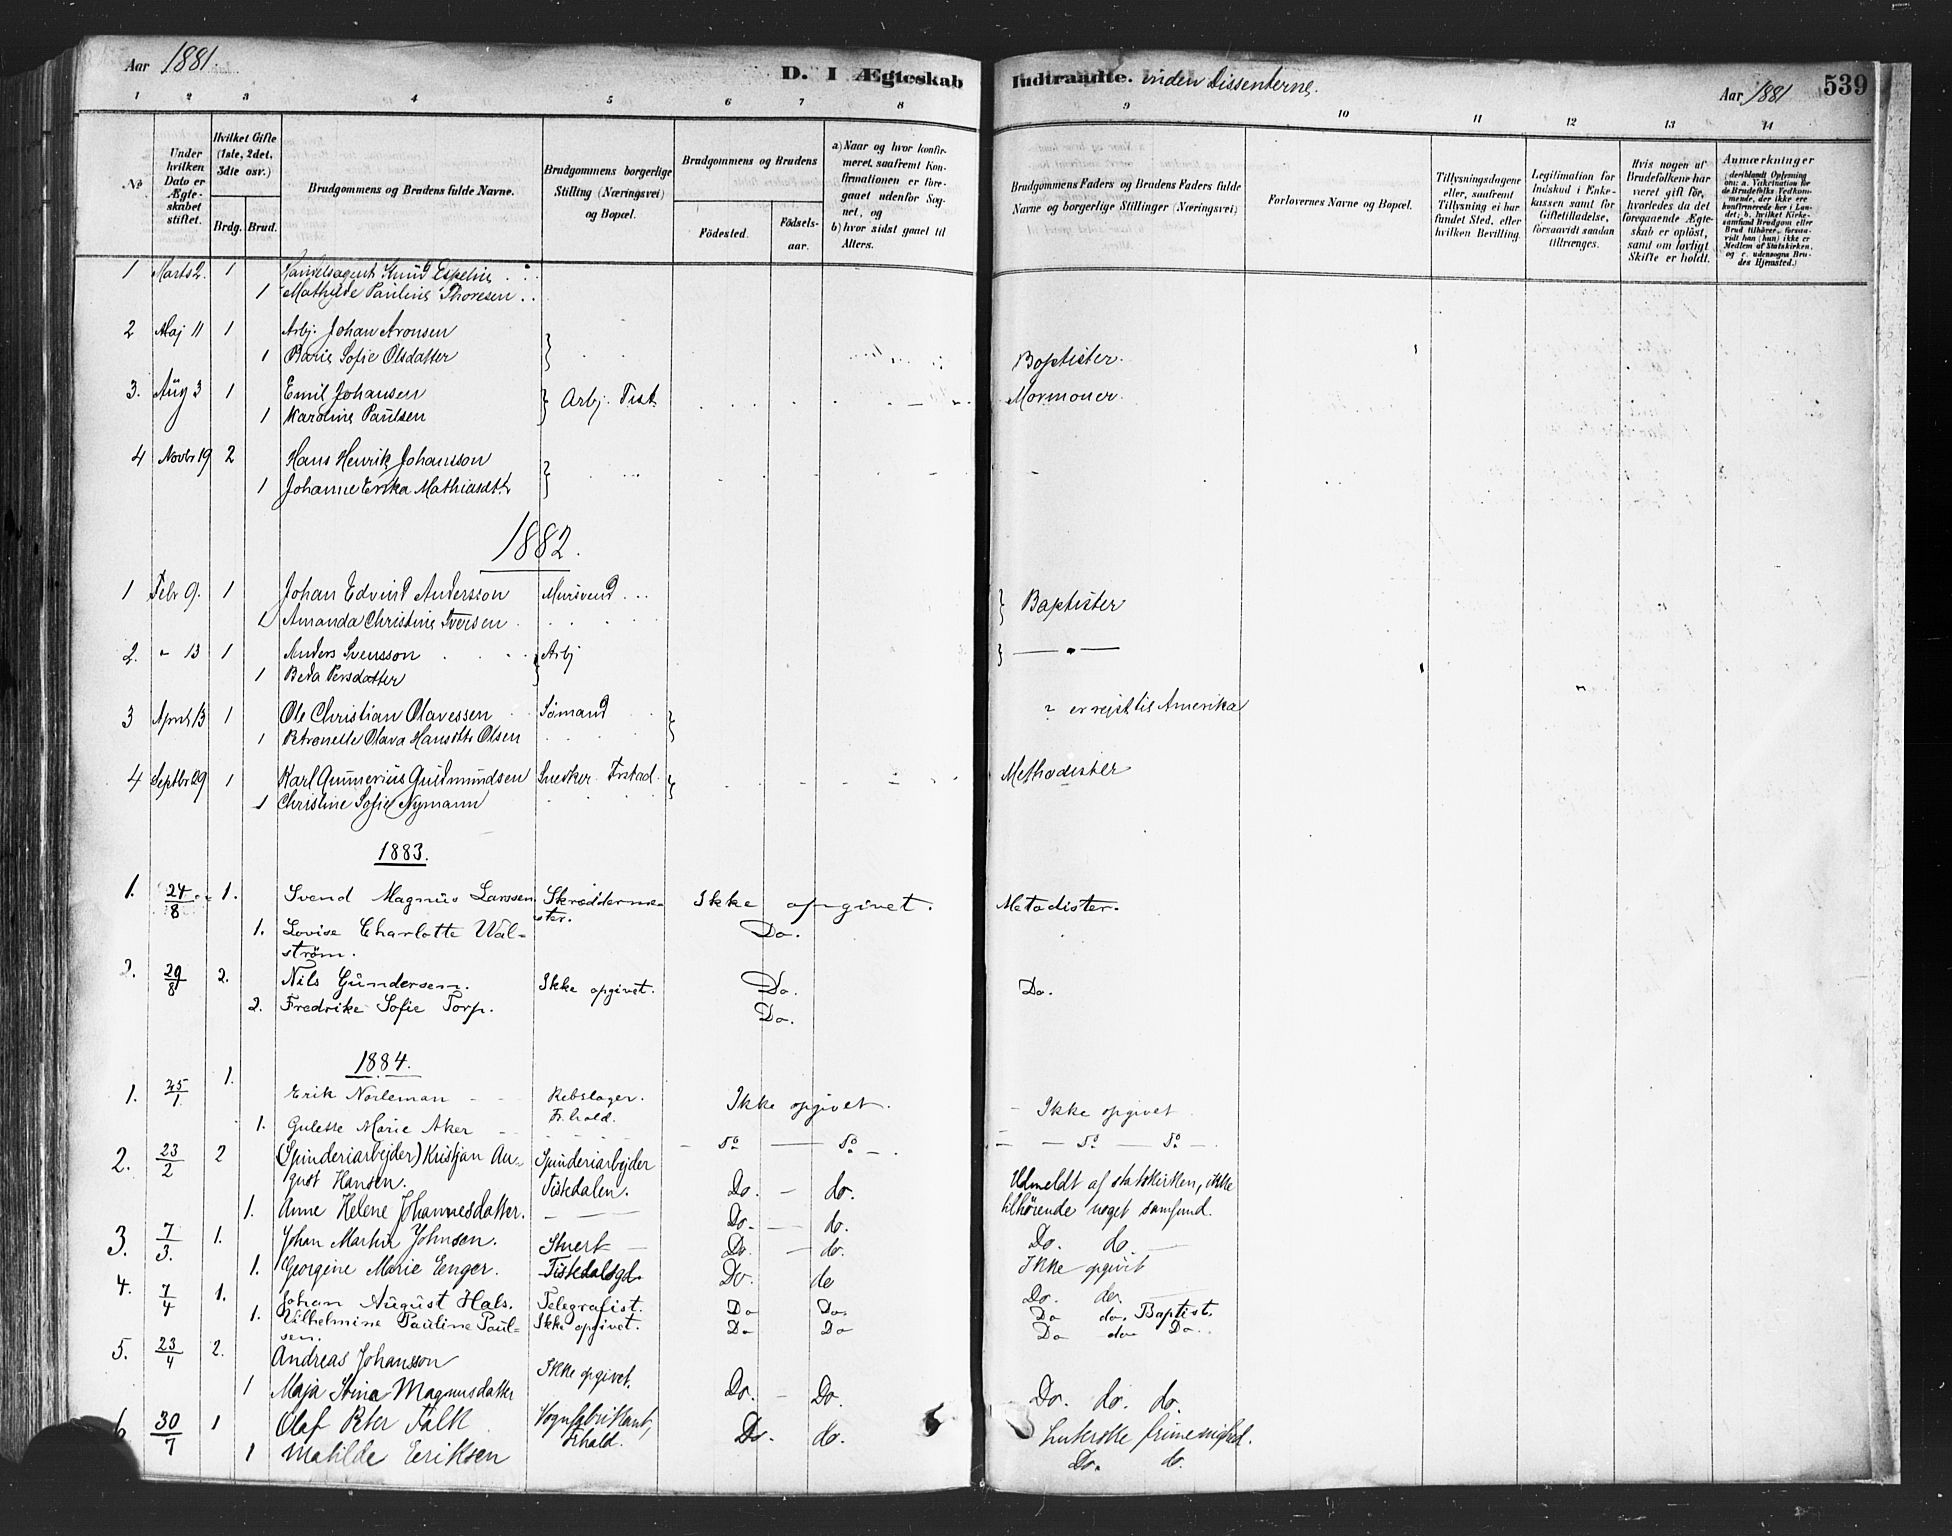 Aar 1881. D. I Ægteskab Indtraadte. inden Dissenterne. Aar 1881 539
1 2 3 4 5 6 7 8 9 10 11 12 13 14
No
Under hvilken Dato er Ægteskabet stiftet.
Hvilket Gifte (1ste, 2det, 3die osv.)
Brdg. Brud.
Brudgommens og Brudens fulde Navne.
Brudgommens borgerlige Stilling (Næringsvei) og Bopæl.
Brudgommens og Brudens
Fødested. Fødselsaar.
a) Naar og hvor konfirmeret, saafremt Konfirmationen er foregaaet udenfor Sognet, og
b) hvor sidst gaaet til Alters.
Brudgommens Faders og Brudens Faders fulde Navne og borgerlige Stillinger (Næringsvei)
Forlovernes Navne og Bopæl.
Tillysningsdagene eller, saafremt Tillysning ei har fundet Sted, efter hvilken Bevilling.
Legitimation for Indskud i Enkekassen samt for Giftetilladelse, forsaavidt saadan tiltrænges.
Hvis nogen af Brudefolkene har været gift før, hvorledes da det foregaaende Ægteskab er opløst, samt om lovligt Skifte er holdt.
Anmærkninger (deriblandt Oplysning om: a. Vakcination for de Brudefolks Vedkommende, der ikke ere konfirmerede her i Landet; b. hvilket Kirkesamfund Brudgom eller Brud tilhører, forsaavidt han (hun) ikke er Medlem af Statskirken, og c. udensogns Brudes Hjemsted.)
1 Marts 2. 1 Handelsagent Knud Espelin
1 Mathilde Pauline Thoresen
2 Maj 11 1 Arbj. Johan Aronsen
1 Marie Sofie Olsdatter Baptister.
3. Aug 3 1 Emil Johansen Arbj. Tist. Mormoner.
1 Karoline Paulsen
4 Novbr 19 2 Hans Henrik Johansson
1 Johanne Erika Mathiasdtr
1882.
1 Febr 9. 1 Johan Edvind Andersson Mursvend Baptister
1 Amanda Christine Iversen
2. " 13 1 Anders Svensson Arbj — " —
1 Beda Persdatter
3 April 13 1 Ole Christian Olavessen Sømand ? er rejst til Amerika
1 Petronelle Olava Hansdtr Olsen
4 Septbr 29 1 Karl Gunnerius Gudmundsen Snedker Frstad. Methodister
1 Christine Sofie Nymann
1883.
1. 24/8 1. Svend Magnus Larssen Skræddermester. Ikke opgivet. Metodister.
1. Lovise Charlotte Wal- Do.
strøm.
2. 29/8 2. Nils Gundersen. Ikke opgivet. Do. Do.
2. Fredrike Sofie Torp. Do.
1884.
1. 25/1 1. Erik Norleman Rebslager. Frhald. Ikke opgivet. Ikke opgivet
1. Gulette Marie Aker — do — do — — do — do —
2. 23/2 2 (Spinderiarbejder) Kristjan Au- Spinderiarbejder
gust Hansen. Tistedalen. Do. — do. Udmeldt af statskirken, ikke
1. Anne Helene Johannesdatter. Do. — do. tilhørende noget samfund.
3. 7/3. 1. Johan Martin Johnsen. Stuert Do. — do. Do. do
1. Georgine Marie Enger. Tistedalsgd. Do. do Ikke opgivet
4. 7/4 1. Johan August Hals. Telegrafist. Do Do. Do. do.
1. Vilhelmine Pauline Paul- Ikke opgivet. Do Do Do do. Baptist.
sen. Do do Do.
5. 23/4 2. Andreas Johansson Ikke opgivet.
1 Maja Stina Magnusdatter Do. — Do. Do. do. do.
6 30/7 1 Olaf Peter Falk Vognfabrikant, Frhald. Do. do. Luterske frimenighed.
1 Matilde Eriksen Do. do.